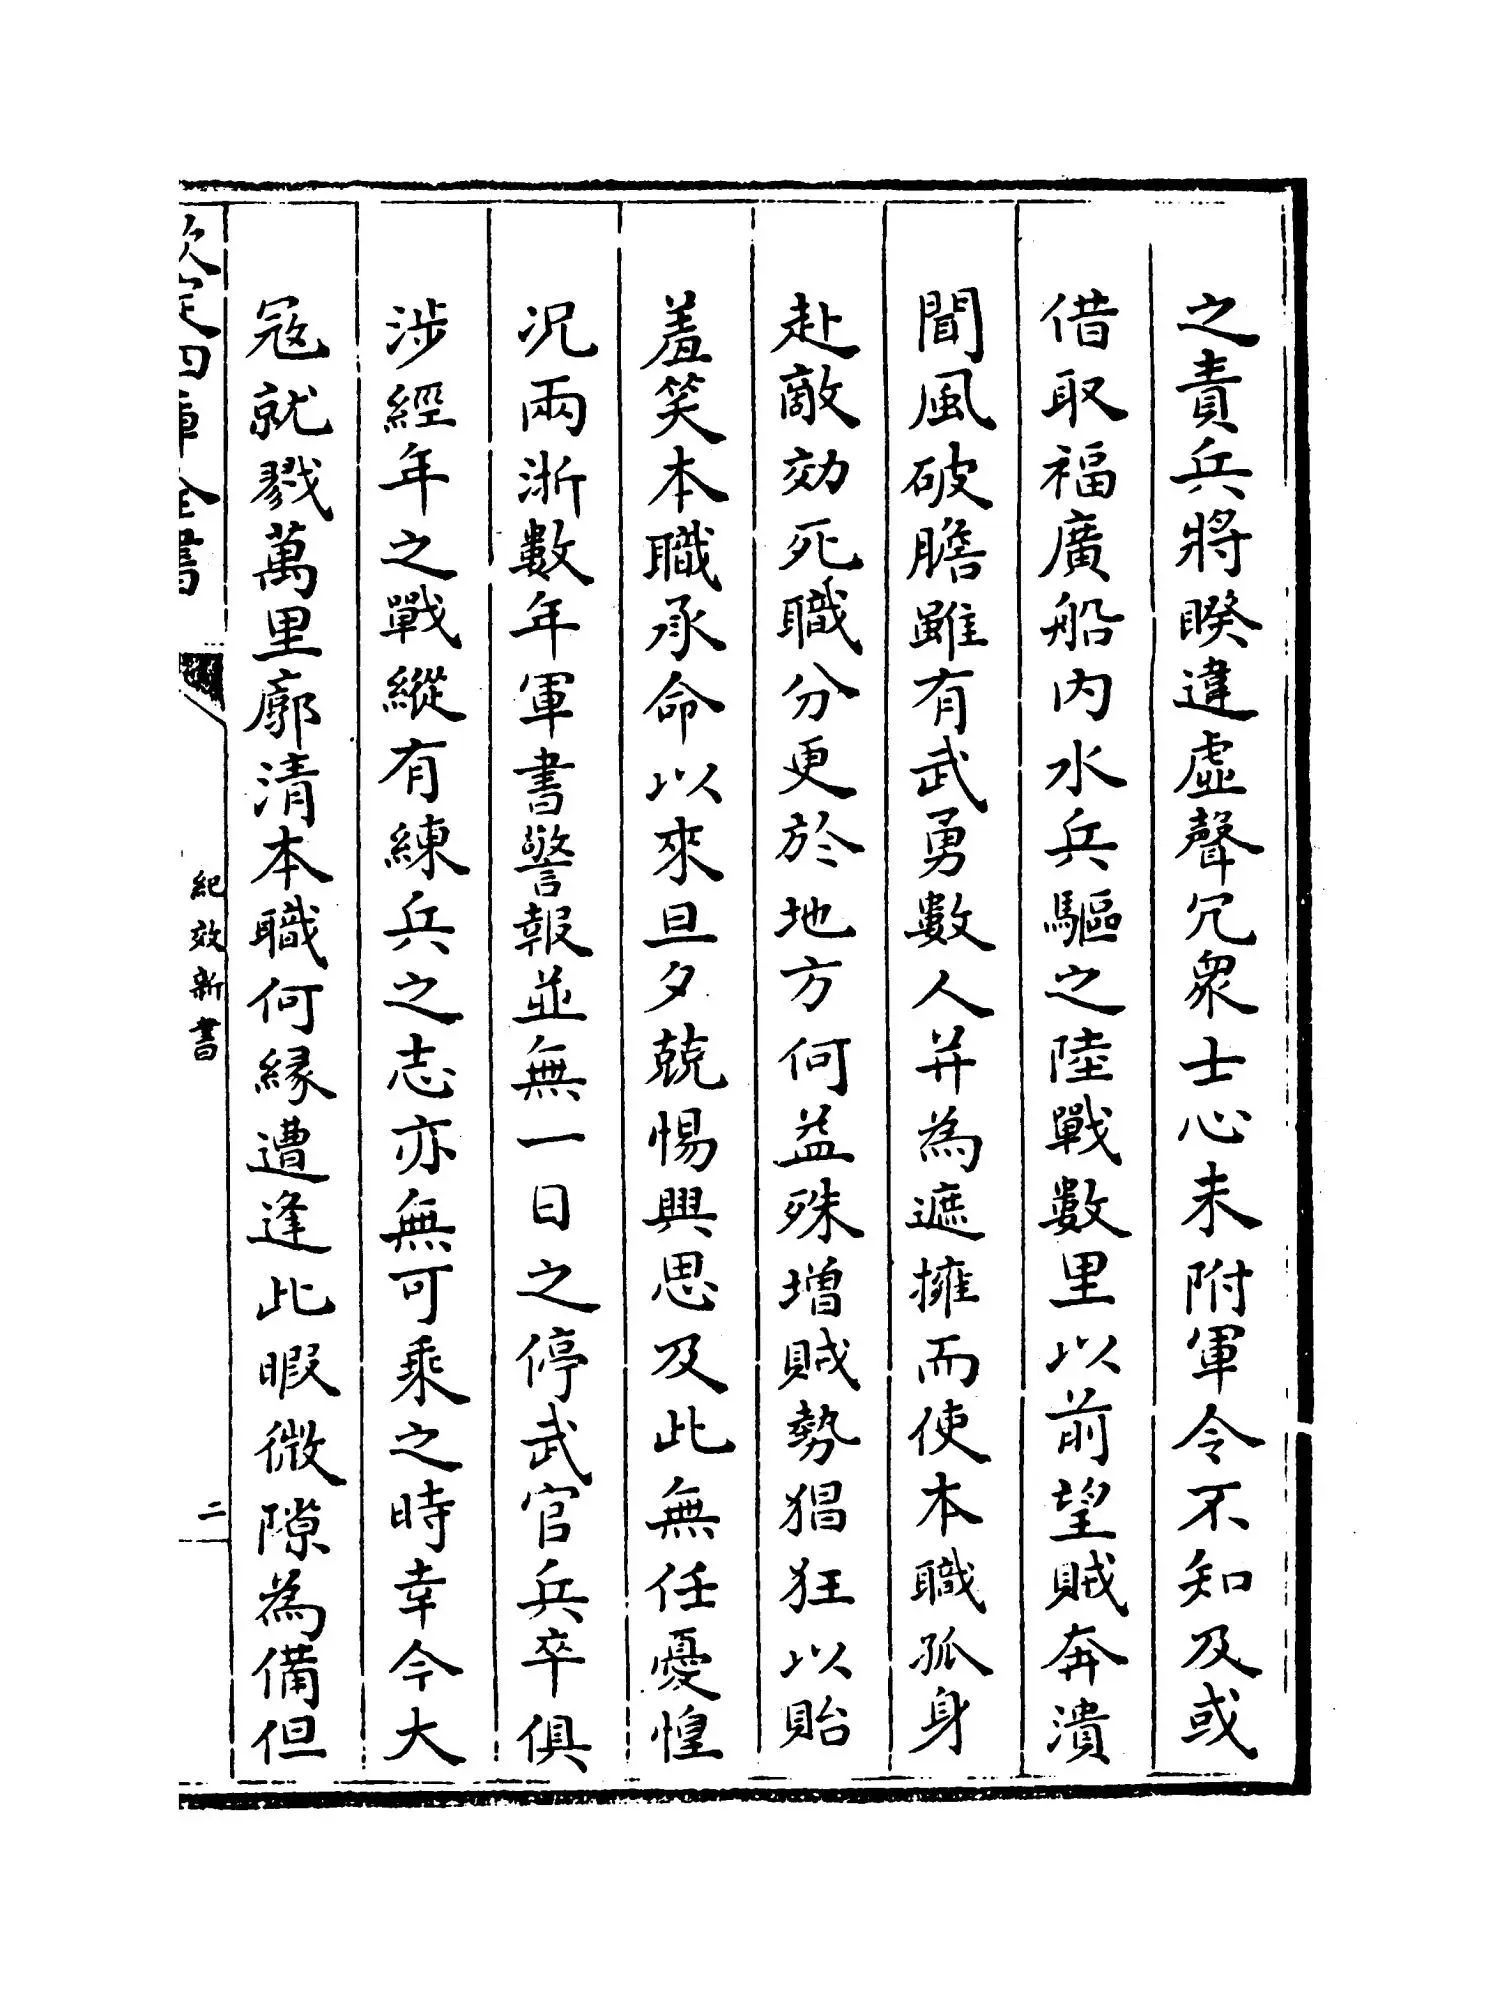 之責兵將睽違虛聲冗衆士心未附軍令不知及或
借取福廣船內水兵驅之陸戰數里以前望賊奔潰
聞風破膽雖有武勇數人并為遮擁而使本職孤身
赴敵効死職分更於地方何益殊增賊勢猖狂以貽
羞笑本職承命以來旦夕兢惕興思及此無任憂惶
况兩浙數年軍書警報並無一日之停武官兵卒俱
涉經年之戰縱有練兵之志亦無可乘之時幸今大
寇就戮萬里廓清本職何緣遭逢此暇微隙為備但
欽定四庫全書
紀效新書
二